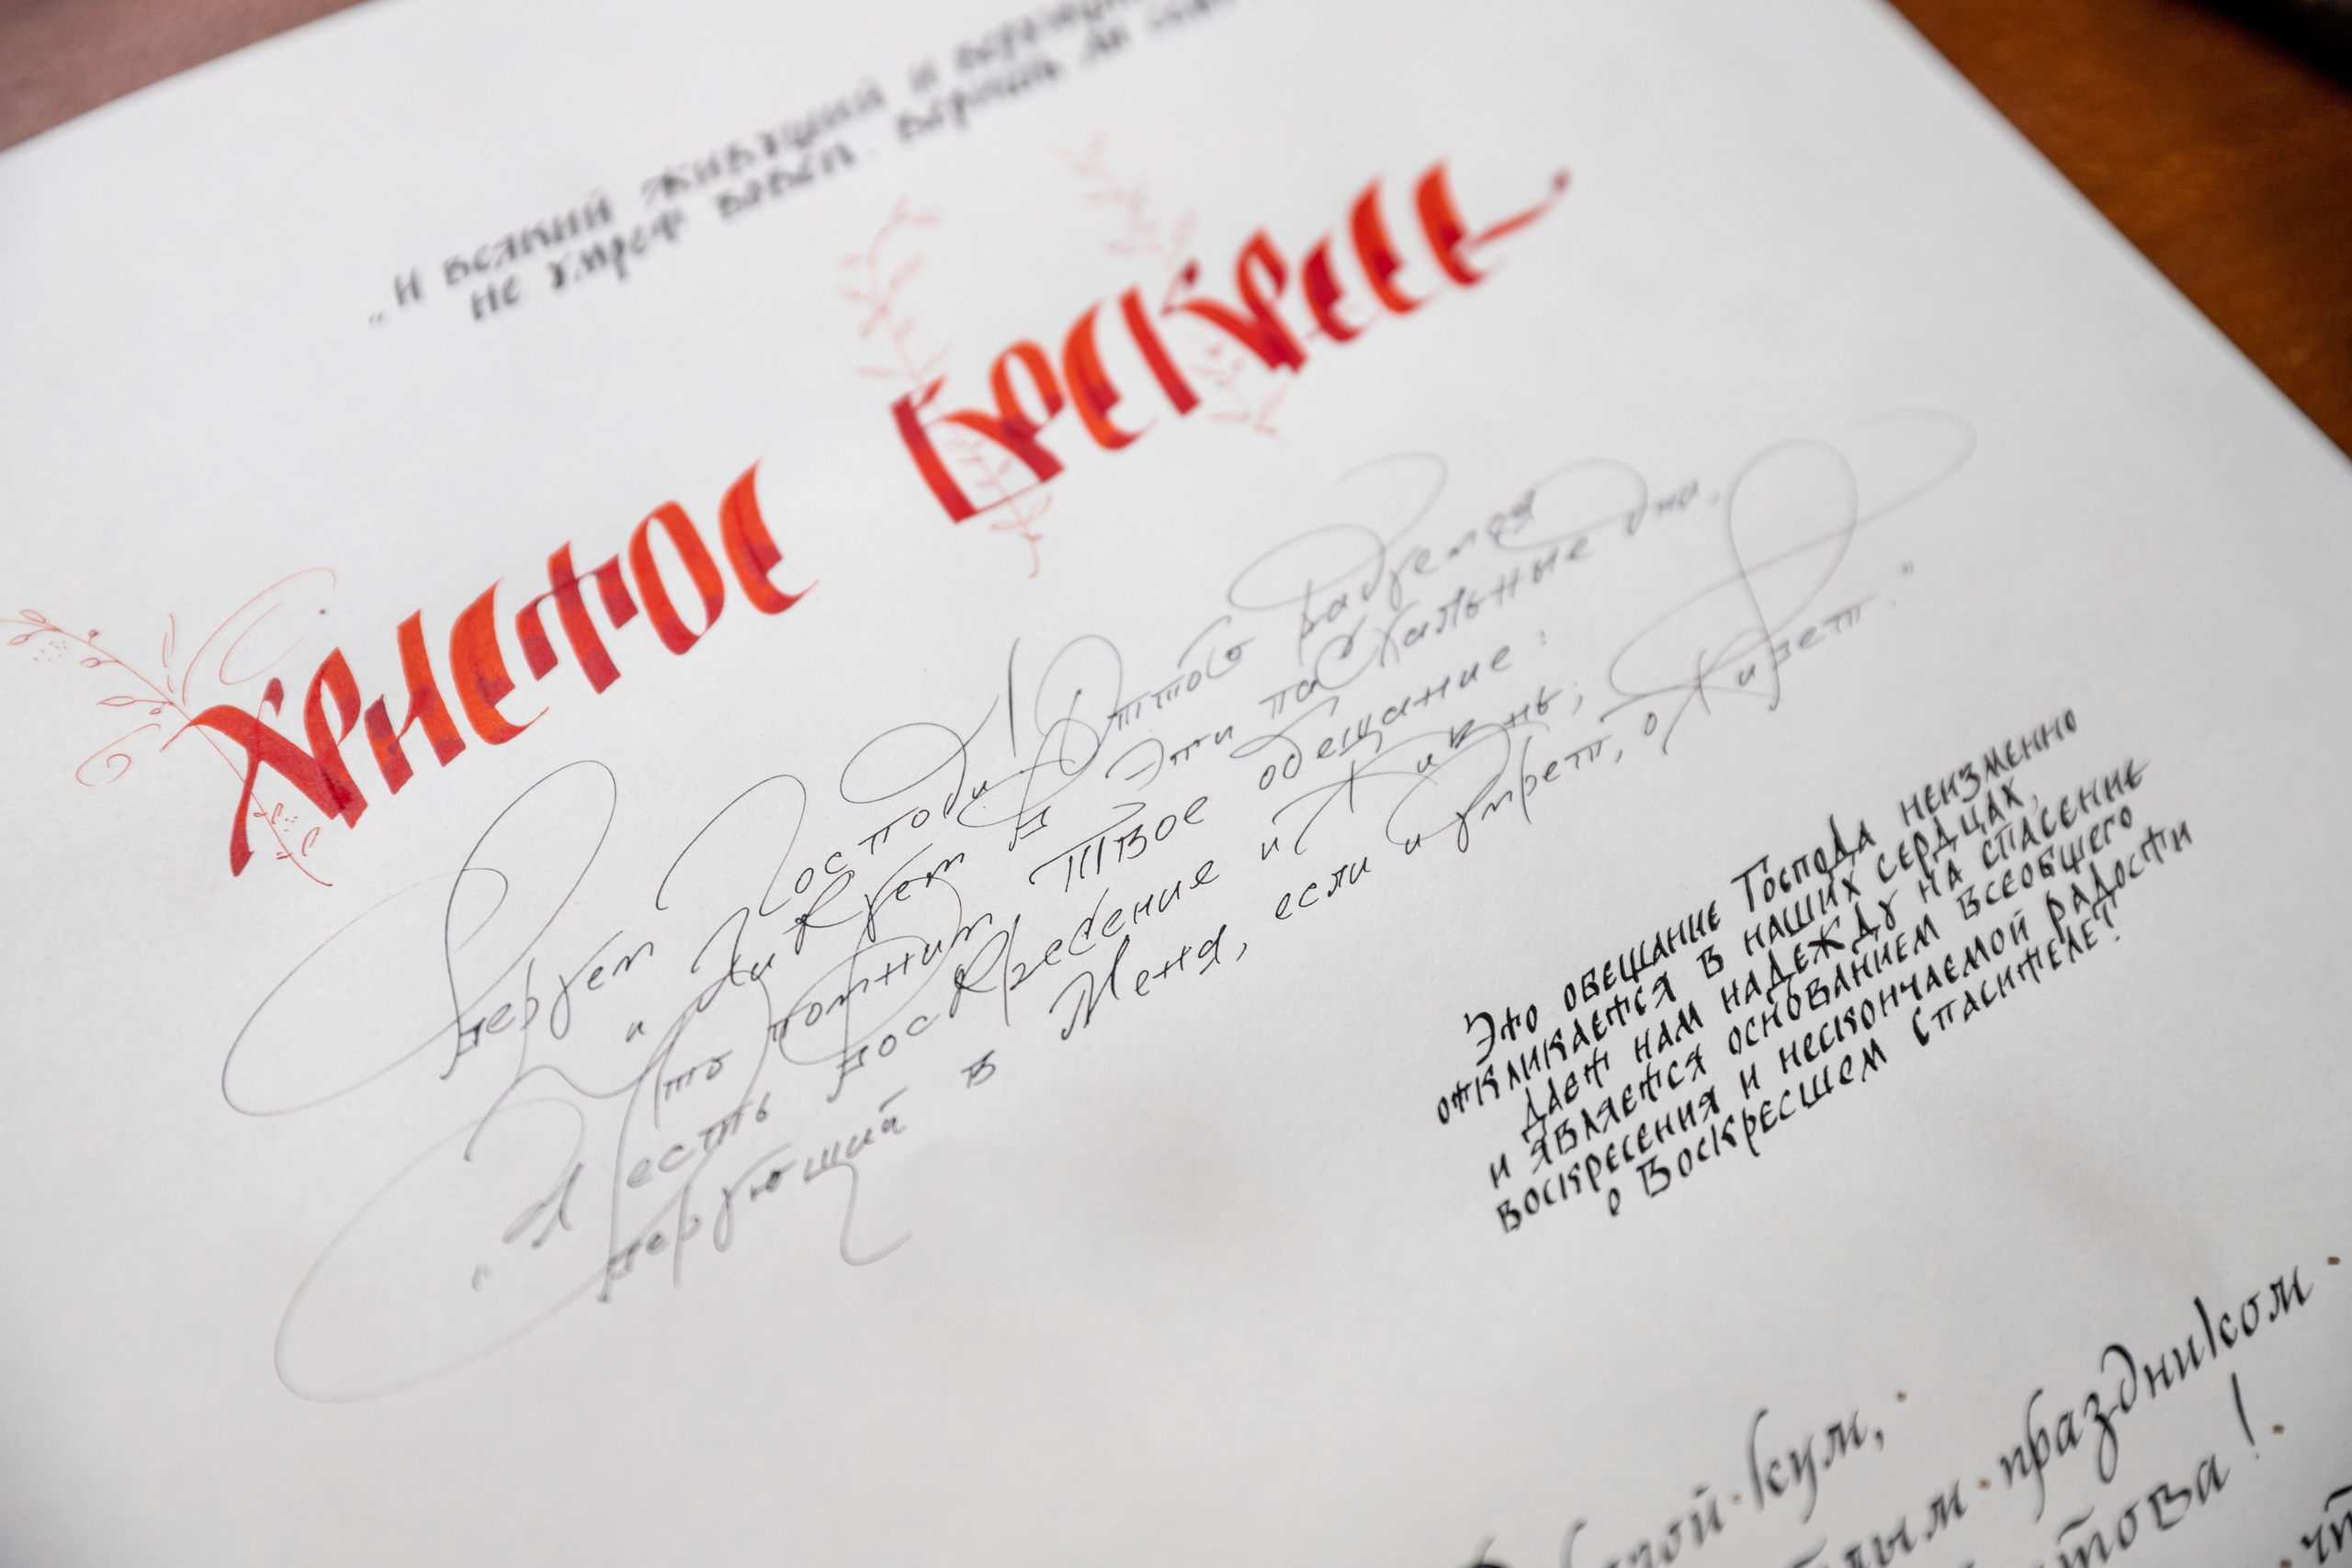 „И всякий живущий и
не умрет вовек. Веришь ли
Христос Воскресе
Веруем Господи! Оттого радуемся
и Ликуем в Эти пасхальные дни,
что помним Твое обещание:
"Я есть воскресение и Жизнь;
верующий в Меня, если и умрет, оживет."
Это обещание Господа неизменно
откликается в наших сердцах,
дает нам надежду на спасение
и является основанием всеобщего
воскресения и нескончаемой радости
о Воскресшем Спасителе!
кум,
праздником